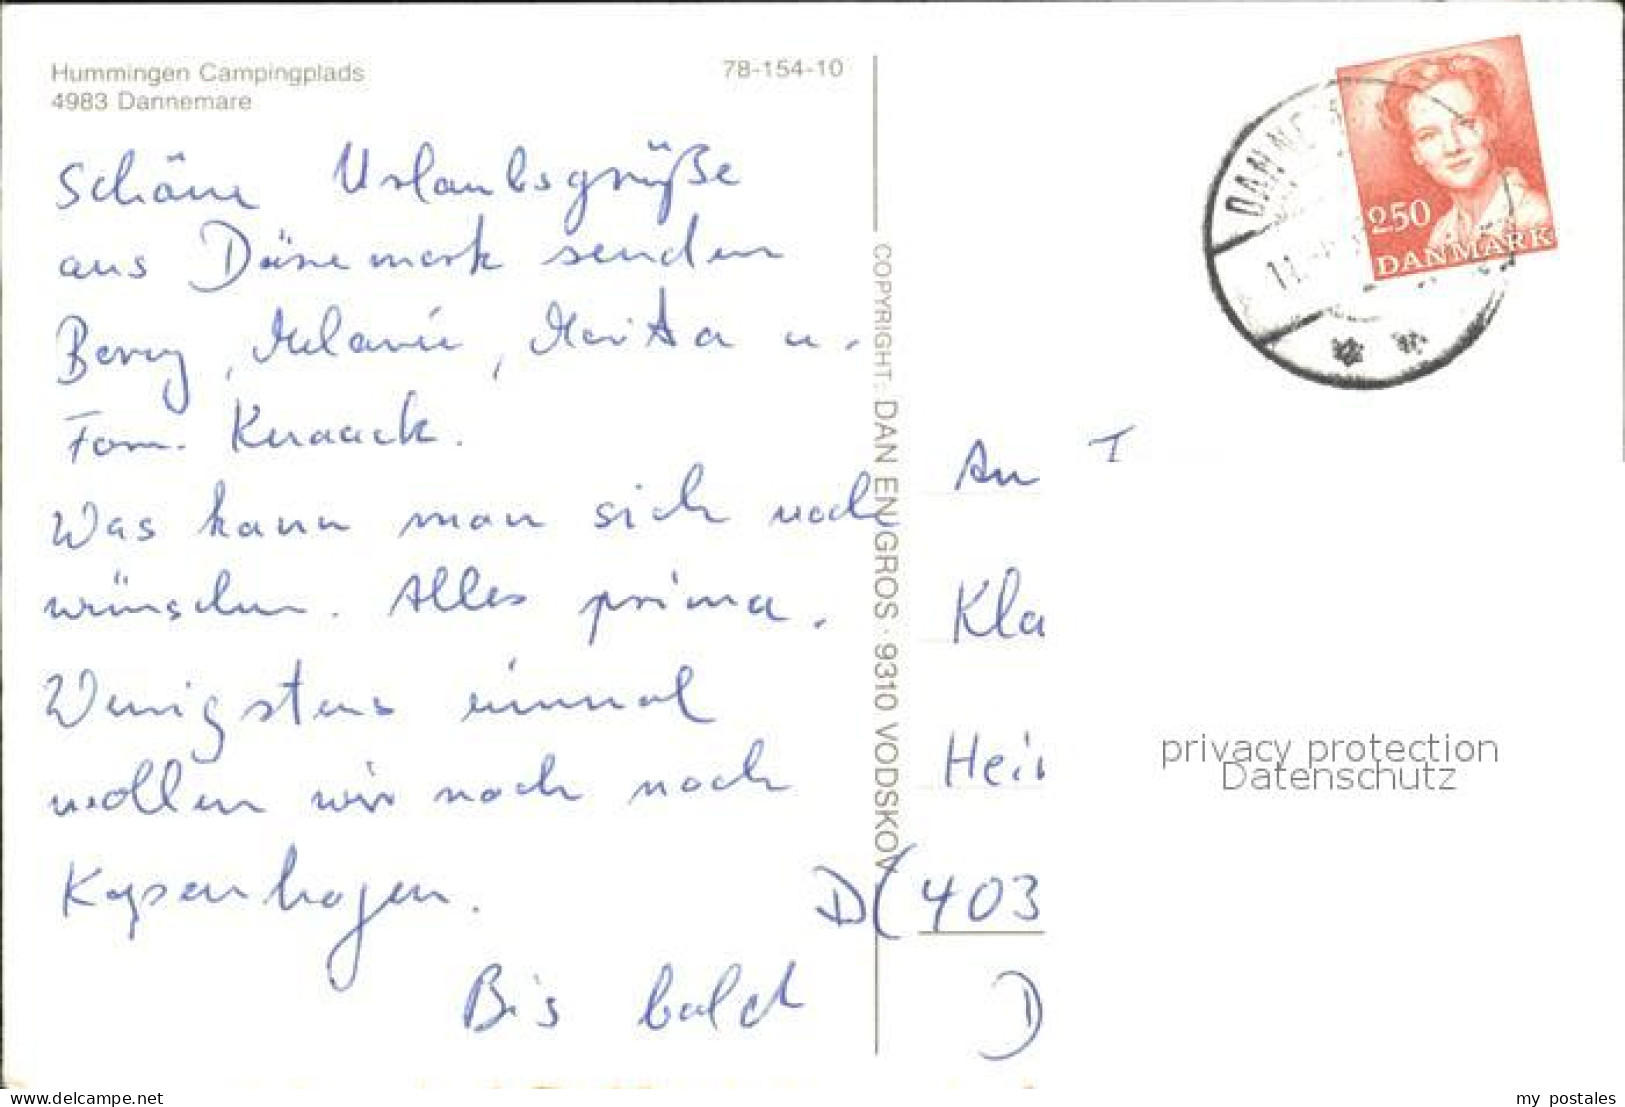 Hummingen Campingplads
4983 Dannemare
78-154-10
Schöne Urlaubsgrüße
aus Dänemark senden
Berny, Melanie, Marita u.
Fam. Knaack.
Was kann man sich noch
wünschen. Alles prima.
Wenigstens einmal
wollen wir noch nach
Kopenhagen.
Bis bald
COPYRIGHT: DAN ENGROS · 9310 VODSKOV
DANNE
11.
2.50
DANMARK
An T
Kla
Hei
D(403
D
privacy protection
Datenschutz
delcampe.net
my_postales